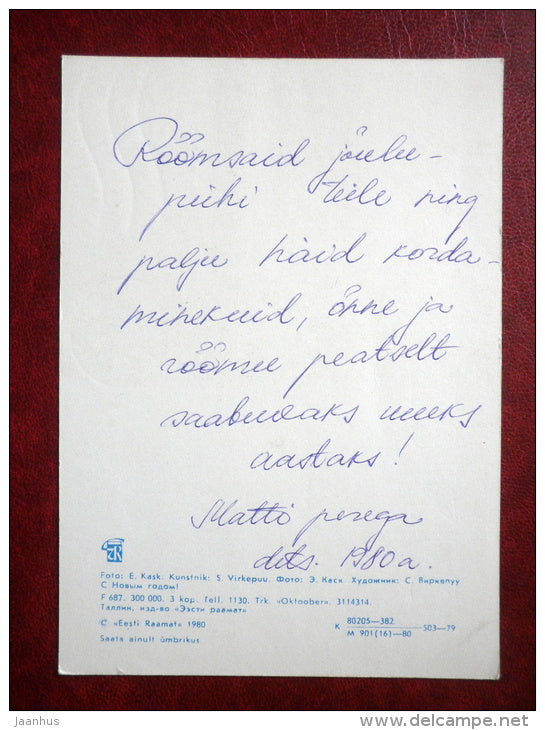 Rõõmsaid jõulu-
pühi teile ning
palju häid korda-
minekuid, õnne ja
rõõmu peatselt
saabuvaks uueks
aastaks!
Matti perega
dets. 1980 a.
Foto: E. Kask. Kunstnik: S. Virkepuu. Фото: Э. Каск. Художник: С. Виркепуу
С Новым годом!
F 687. 300 000. 3 kop. Tell. 1130. Trk. «Oktoober». 3114314.
Таллин, изд-во «Ээсти раамат»
© «Eesti Raamat» 1980
К 80205—382 503—79
М 901(16)—80
Saata ainult ümbrikus.
jaanhus
www.delcampe.net